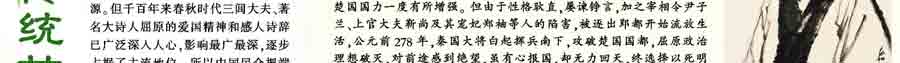 统
源。但千百年来春秋时代三闾大夫、著
名大诗人屈原的爱国精神和感人诗辞
已广泛深入人心,影响最广最深,逐步
楚国国力一度有所增强。但由于性格耿直,屡谏铮言,加之宰相令尹子
兰、上官大夫靳尚及其宠妃郑袖等人的陷害,被逐出郢都开始流放生
活,公元前278年,秦国大将白起挥兵南下,攻破楚国国都,屈原政治
理想破灭,对前途感到绝望,虽有心报国,却无力回天,终选择以死明